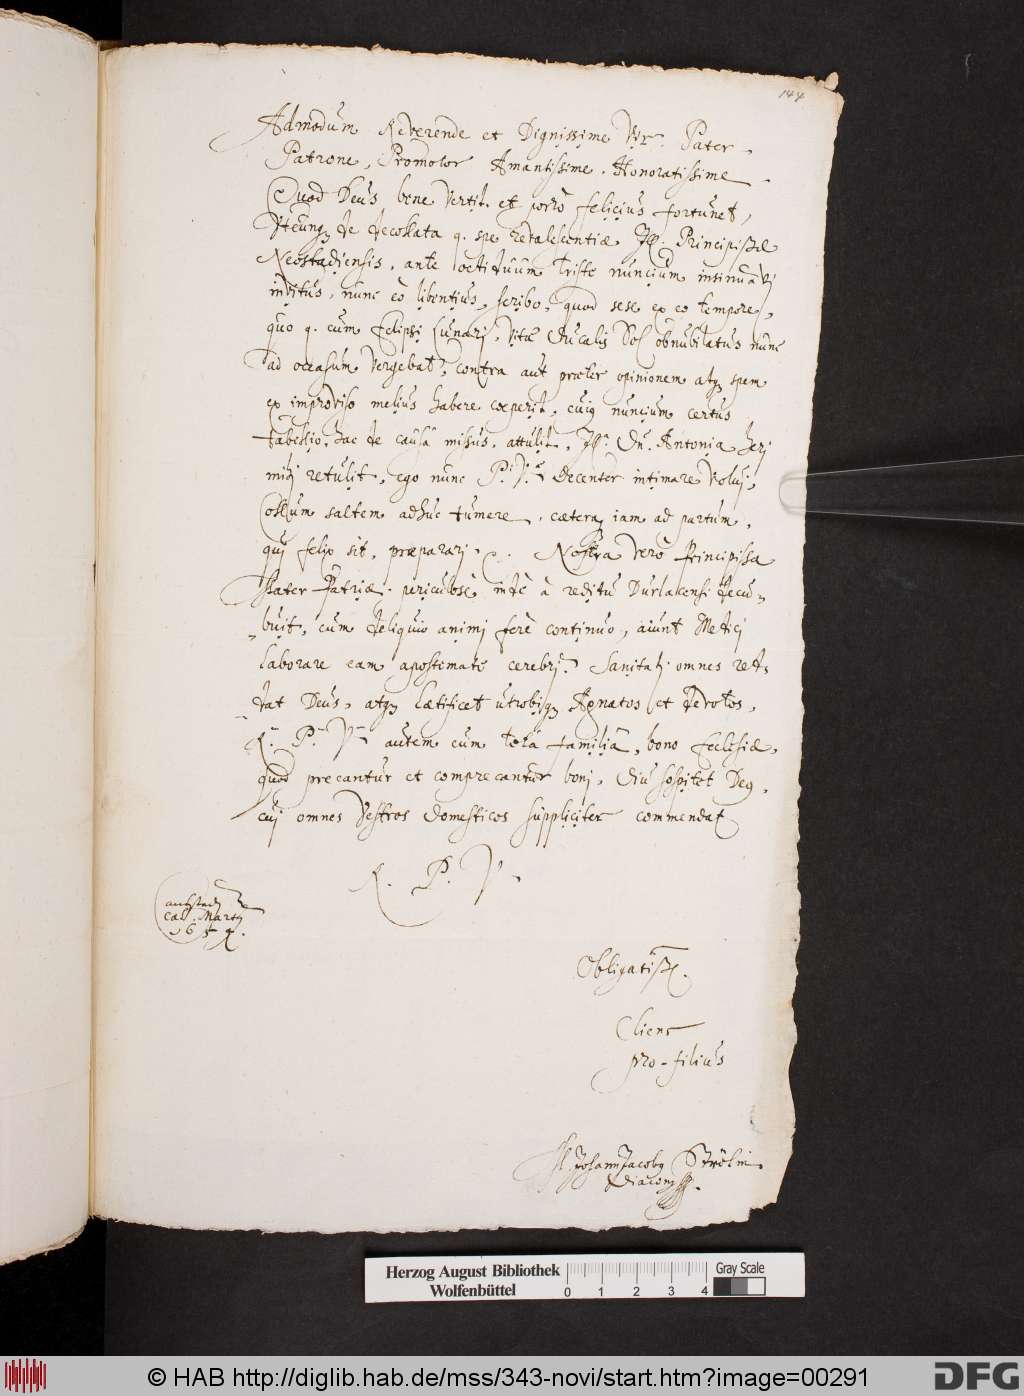 144
Admodum Reverende et Dignissime Vir. Pater
Patrone, Promotor Amantissime. Honoratissime
Quod Deus bene vertit. et porrò feliciùs fortunet,
de decollata q. spe revalescentiæ Ill. Principissæ
Neostadiensis, ante octiduum triste nuncium insinuavi
invitus, nunc eò libentiùs, scribo, quod sese ex eo tempore,
quo q. cum Eclipsi Lunari, vitæ Ducalis Sol obnubilatus nunc
ad occasum vergebat, contra aut præter opinionem atq spem
ex improviso meliùs habere cœperit, cuiq nuncium certus
tabellio, hac de causâ missus, attulit, Ill. Dn. Antonia heri
mihi retulit, ego nunc P. V. Decenter intimare volui,
Collum saltem adhuc tumere, cætera iam ad partum,
qui felix sit, præparari. Nostra verò Principissa
Mater Patriæ. periculosè inde à reditu Durlacensi decu-
buit, cum deliquio animi ferè continuo, aiunt Medici
laborare eam apostemate cerebri. Sanitati omnes red-
dat Deus, atq lætificet utrobiq Agnatos et devotos,
R. P. V. autem cum totâ familiâ, bono Ecclesiæ,
quod precantur et comprecantur boni, diu sospitet Deq,
cui omnes Vestros domesticos suppliciter commendat
R. P. V.
Cal. Martij
Obligatiss.
Cliens
pro-filius
M. Johann Jacobq Strölin
Diaconq
Herzog August Bibliothek
Wolfenbüttel
0 1 2 3 4
Gray Scale
© HAB http://diglib.hab.de/mss/343-novi/start.htm?image=00291
DFG